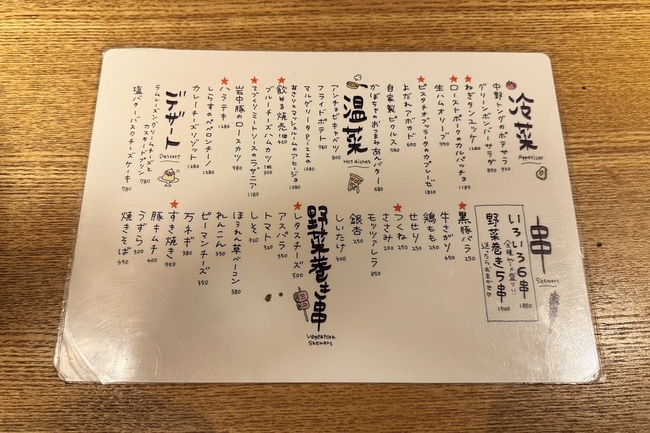 冷菜
Appetizer
中野トングのポテサラ
グリーンボンバーサラダ 850
★ねぎタンユッケ
★ローストポークのカルパッチョ
生ハムオリーブ
★ピスタチオブッラータのカプレーゼ
よだれアボカド 600
自家製ピクルス
かぼちゃのおつまみあんバター 680
温菜
Hot dishes
アンチョビキャベツ
フライドポテト 780
マルゲリータPizza 1080
あさりとマッシュルームのアヒージョ
★飲める焼売
ブルーチーズハムカツ
★マグぐりミートソースのラザニア
岩中豚のロースカツ 980
★ハラテキ 1280
しらすのペペロンチーノ 1280
カレーチーズリゾット 1280
デザート
Dessert
ラムレーズンクリームチーズと
カスタードプリン 780
塩バターバスクチーズケーキ 780
串
Skewers
いろいろ6串 1880
野菜巻き5串
★黒豚バラ 250
牛さがり 450
鶏もも 250
せせり 250
★つくね 250
ささみ 200
モッツァレラ 350
銀杏 250
しいたけ
野菜巻き串
Vege&Pork
Skewers
★レタスチーズ
アスパラ 350
トマト 320
しそ 320
ほうれん草ベーコン 380
れんこん
ピーマンチーズ 350
万ネギ 380
★すき焼き 450
豚キムチ 400
うずら 300
焼きそば 450